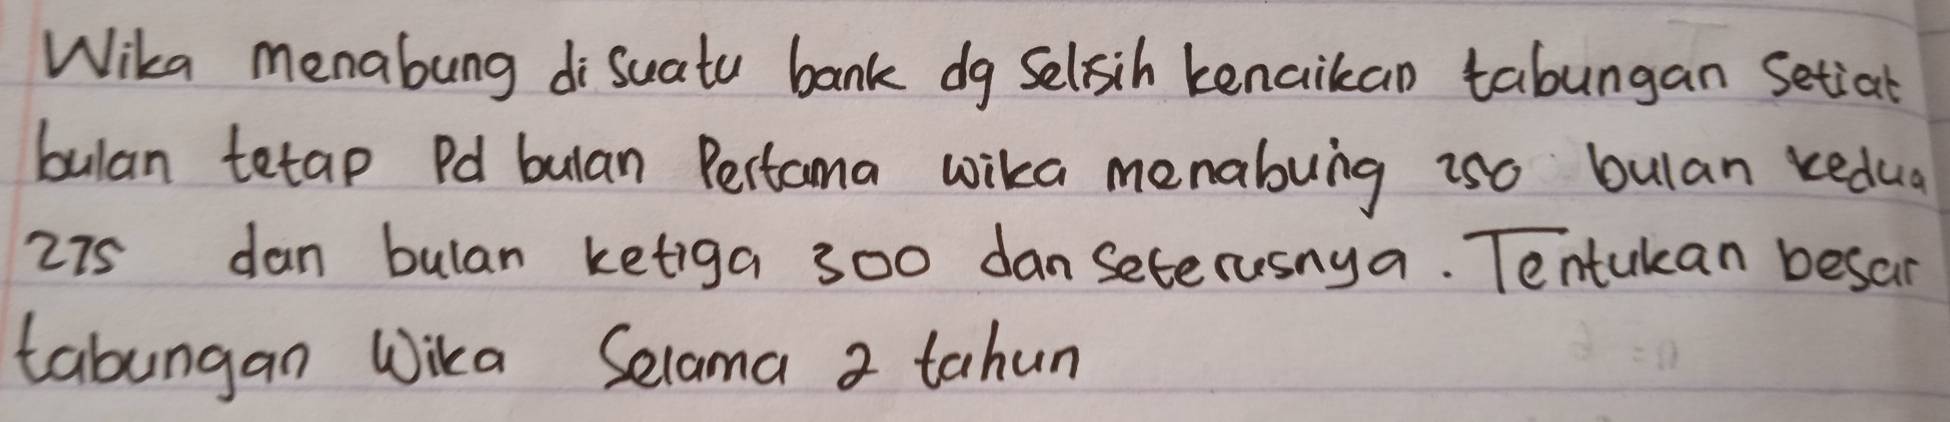 Wika menabung di suatu bank dg Selisih kenaikan tabungan Setiat
bulan tetap Pd bulan Pertama wika menabung 250 bulan kedua
275 dan bulan ketiga 300 dan seterusnya. Tentukan besar
tabungan Wika Selama 2 tahun